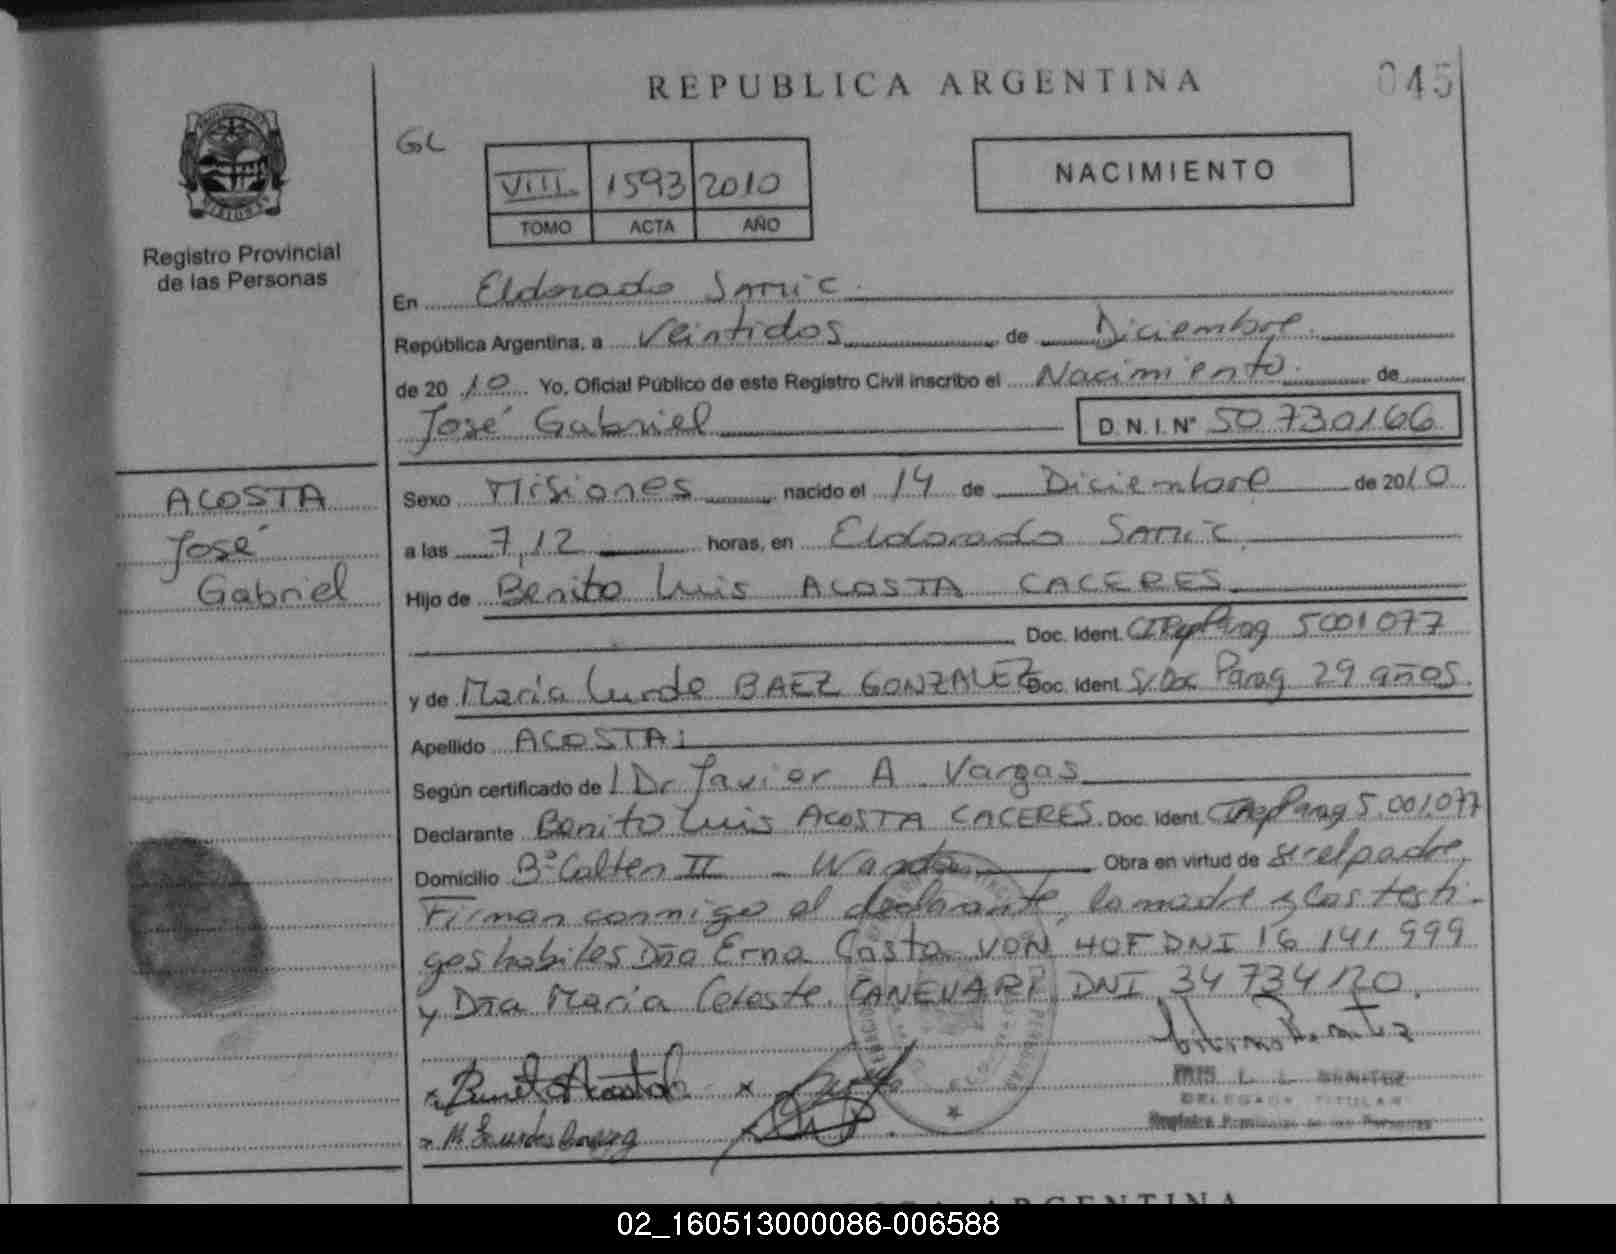 REPUBLICA ARGENTINA
045
GL
VIII 1593 2010
TOMO ACTA AÑO
NACIMIENTO
Registro Provincial
de las Personas
En Eldorado
República Argentina, a Veintidos de Diciembre
de 2010 Yo, Oficial Público de este Registro Civil inscribo el Nacimiento de
José Gabriel D.N.I. Nº 50.730.166
ACOSTA
José
Gabriel
Sexo Misiones nacido el 14 de Diciembre de 2010
a las 7,12 horas, en Eldorado
Hijo de Benito Luis ACOSTA CACERES
Doc. Ident. 5001077
y de Maria Lurde BAEZ GONZALEZ Doc. Ident S/Doc Parag 29 años.
Apellido ACOSTA
Según certificado de Dr Javier A Vargas
Declarante Benito Luis ACOSTA CACERES. Doc. Ident. 5.001.077
Domicilio Bº II - Wanda Obra en virtud de ser el padre,
Firman conmigo el declarante, la madre y los testi-
gos habiles Dña Erna Casta VON HOF DNI 16 141 999
y Dña Maria Celeste CANEVARI DNI 34 734 120.
DELEGADA TITULAR
ARGENTINA
02_160513000086-006588